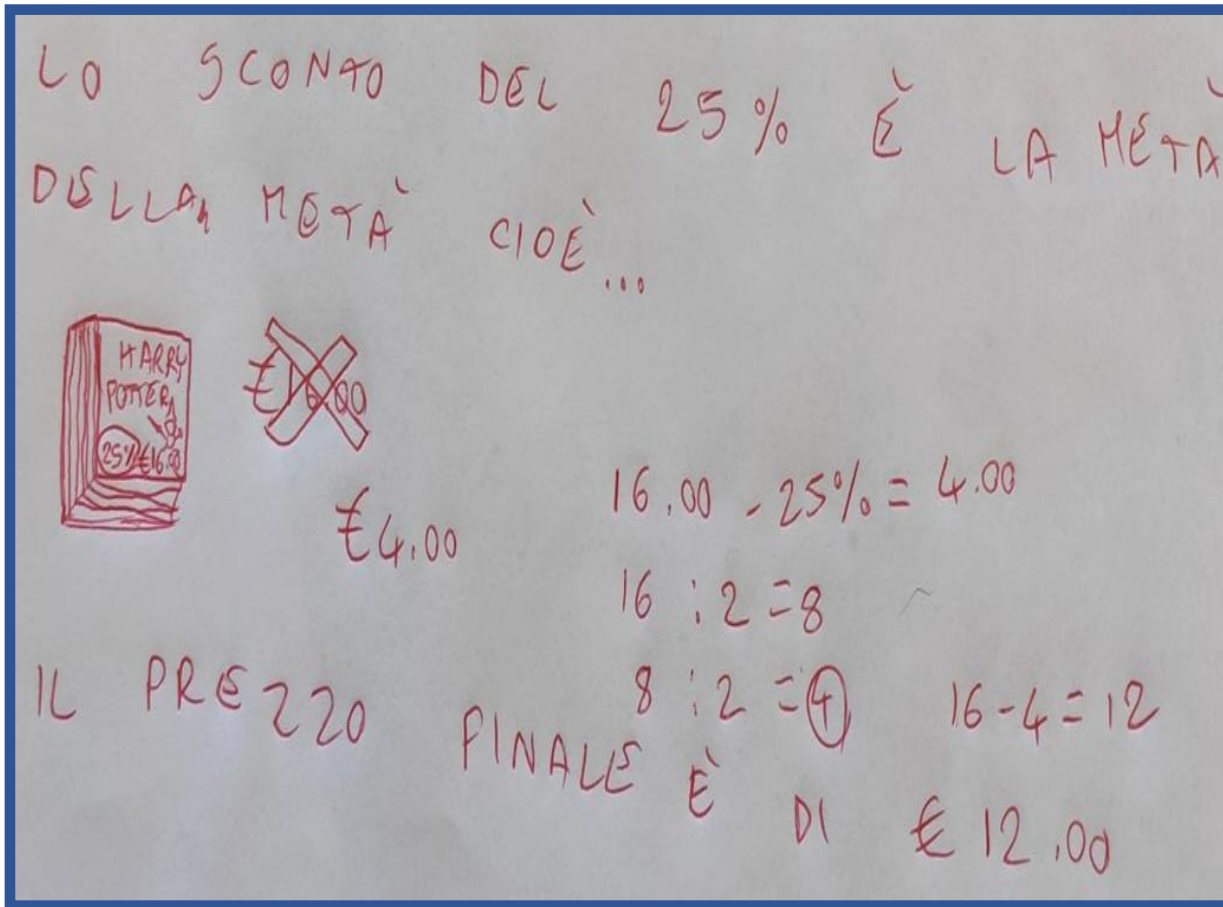 LO SCONTO DEL 25% È LA METÀ
DELLA METÀ CIOÈ...
HARRY
POTTER
25% €16.00
€16.00
€4.00
16.00 - 25% = 4.00
16 : 2 = 8
8 : 2 = 4 16 - 4 = 12
IL PREZZO FINALE È DI € 12.00